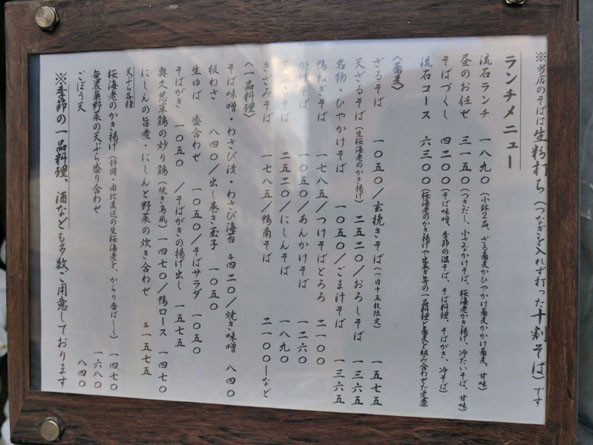 ※当店のそばは生粉打ち(つなぎを入れず打った十割そば)です
ランチメニュー
流石ランチ 一八九〇(小鉢2品、ざる蕎麦かひやかけ蕎麦かかけ蕎麦、甘味)
昼のお任せ 三一五〇(つきだし、小さなかけそば、桜海老かき揚げ、冷たいそば、甘味)
そばづくし 四二〇〇(そば味噌、季節の温そば、そば料理、そばがき、冷そば)
流石コース 六三〇〇
(蕎麦)
ざるそば 一〇五〇/玄挽きそば(一日十五枚限定) 一五七五
天ざるそば(生桜海老のかき揚げ) 二五二〇/おろしそば 一三六五
名物・ひやかけそば 一〇五〇/ごま汁そば 一三六五
鴨ねぎそば 一七八五/つけそばとろろ 二一〇〇
一〇五〇/あんかけそば 一二六〇
二五二〇/にしんそば 一八九〇
一七八五/鴨南そば 二一〇〇―など
(一品料理)
そば味噌・わさび漬・わさび海苔 各四二〇/焼き味噌 八四〇
板わさ 八四〇/出し巻き玉子 一〇五〇
生ゆば 盛合わせ 一〇五〇/そばサラダ 一〇五〇
そばがき 一〇五〇/そばがきの揚げ出し 一五七五
奥久慈軍鶏の炒り鶏(焼き鳥風) 一四七〇/鴨ロース 一四七〇
にしんの旨煮・にしんと野菜の炊き合わせ 各一五七五
天ぷら各種
桜海老のかき揚げ(静岡・由比直送の生桜海老を、からり香ばしく) 一四七〇
無農薬野菜の天ぷら盛り合わせ 一六八〇
ごぼう天 八四〇
※季節の一品料理、酒なども多数ご用意しております